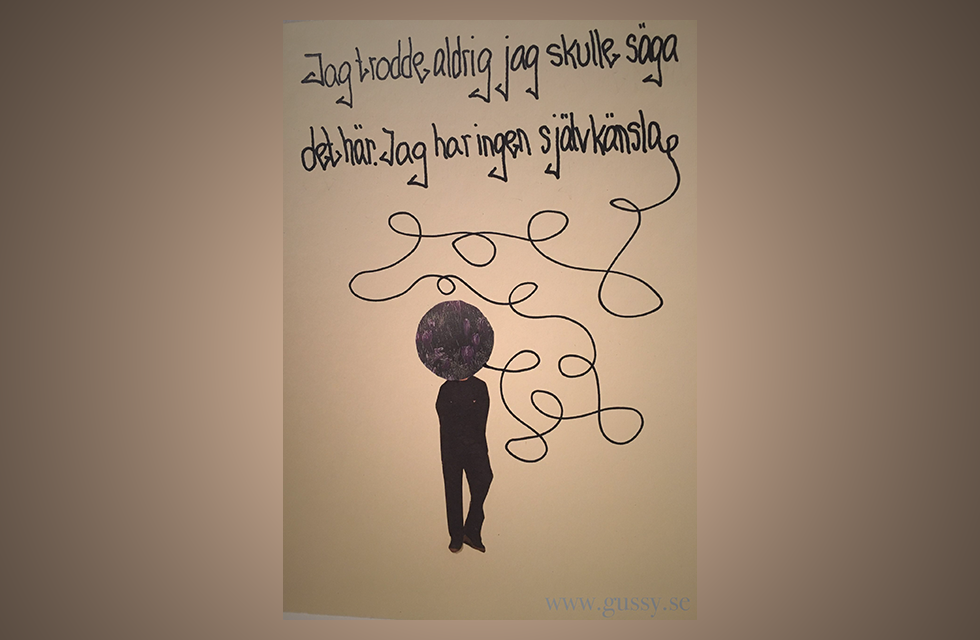 Jag trodde aldrig jag skulle säga
det här. Jag har ingen självkänsla
www.gussy.se